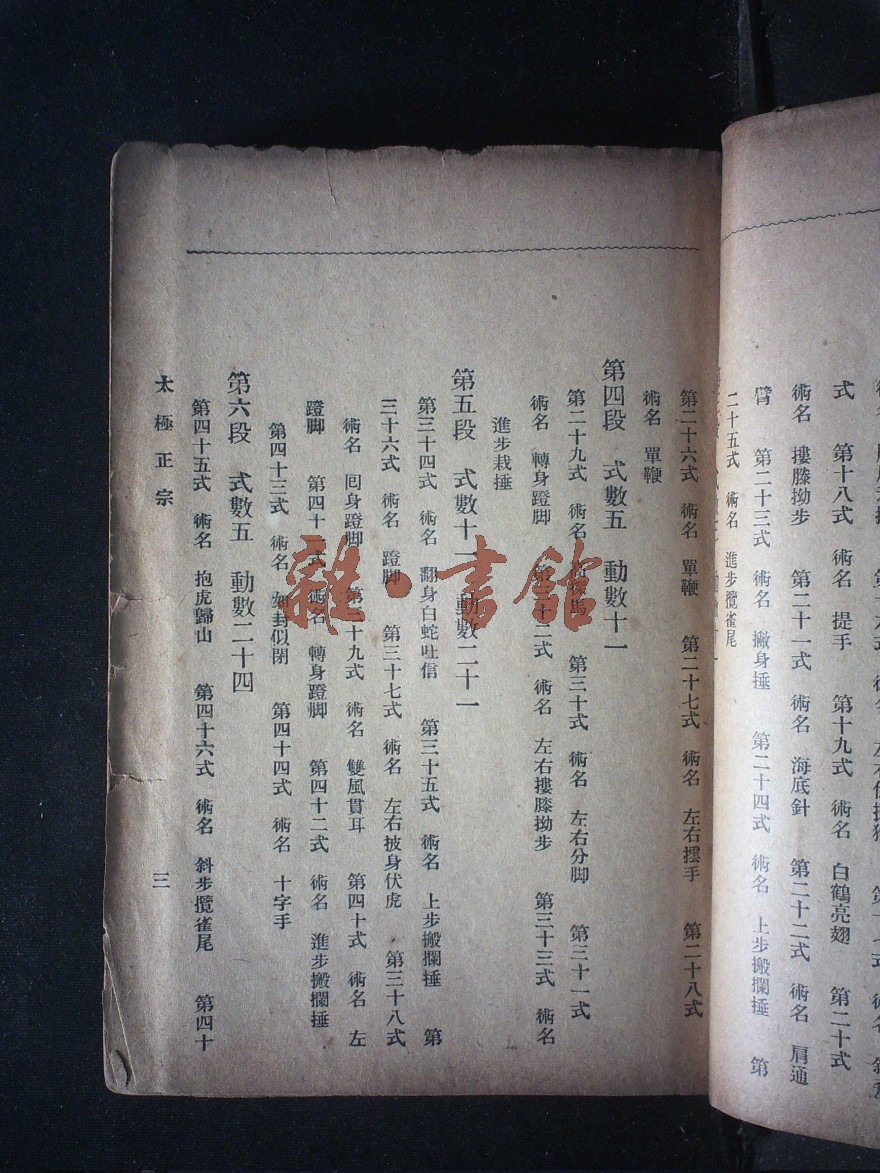 式　第十八式　術名　提手　第十九式　術名　白鶴亮翅　第二十式
術名　摟膝拗步　第二十一式　術名　海底針　第二十二式　術名　肩通
臂　第二十三式　術名　撇身捶　第二十四式　術名　上步搬攔捶　第
二十五式　術名　進步攬雀尾
第二十六式　術名　單鞭　第二十七式　術名　左右擺手　第二十八式
術名　單鞭
第四段　式數五　動數十一
第二十九式　術名　馬　第三十式　術名　左右分脚　第三十一式
術名　轉身蹬脚　第三十二式　術名　左右摟膝拗步　第三十三式　術名
進步栽捶
第五段　式數十一　動數二十一
第三十四式　術名　翻身白蛇吐信　第三十五式　術名　上步搬攔捶　第
三十六式　術名　蹬脚　第三十七式　術名　左右披身伏虎　第三十八式
術名　回身蹬脚　第三十九式　術名　雙風貫耳　第四十式　術名　左
蹬脚　第四十一式　術名　轉身蹬脚　第四十二式　術名　進步搬攔捶
第四十三式　術名　如封似閉　第四十四式　術名　十字手
第六段　式數五　動數二十四
第四十五式　術名　抱虎歸山　第四十六式　術名　斜步攬雀尾　第四十
太極正宗　三
雜·書館